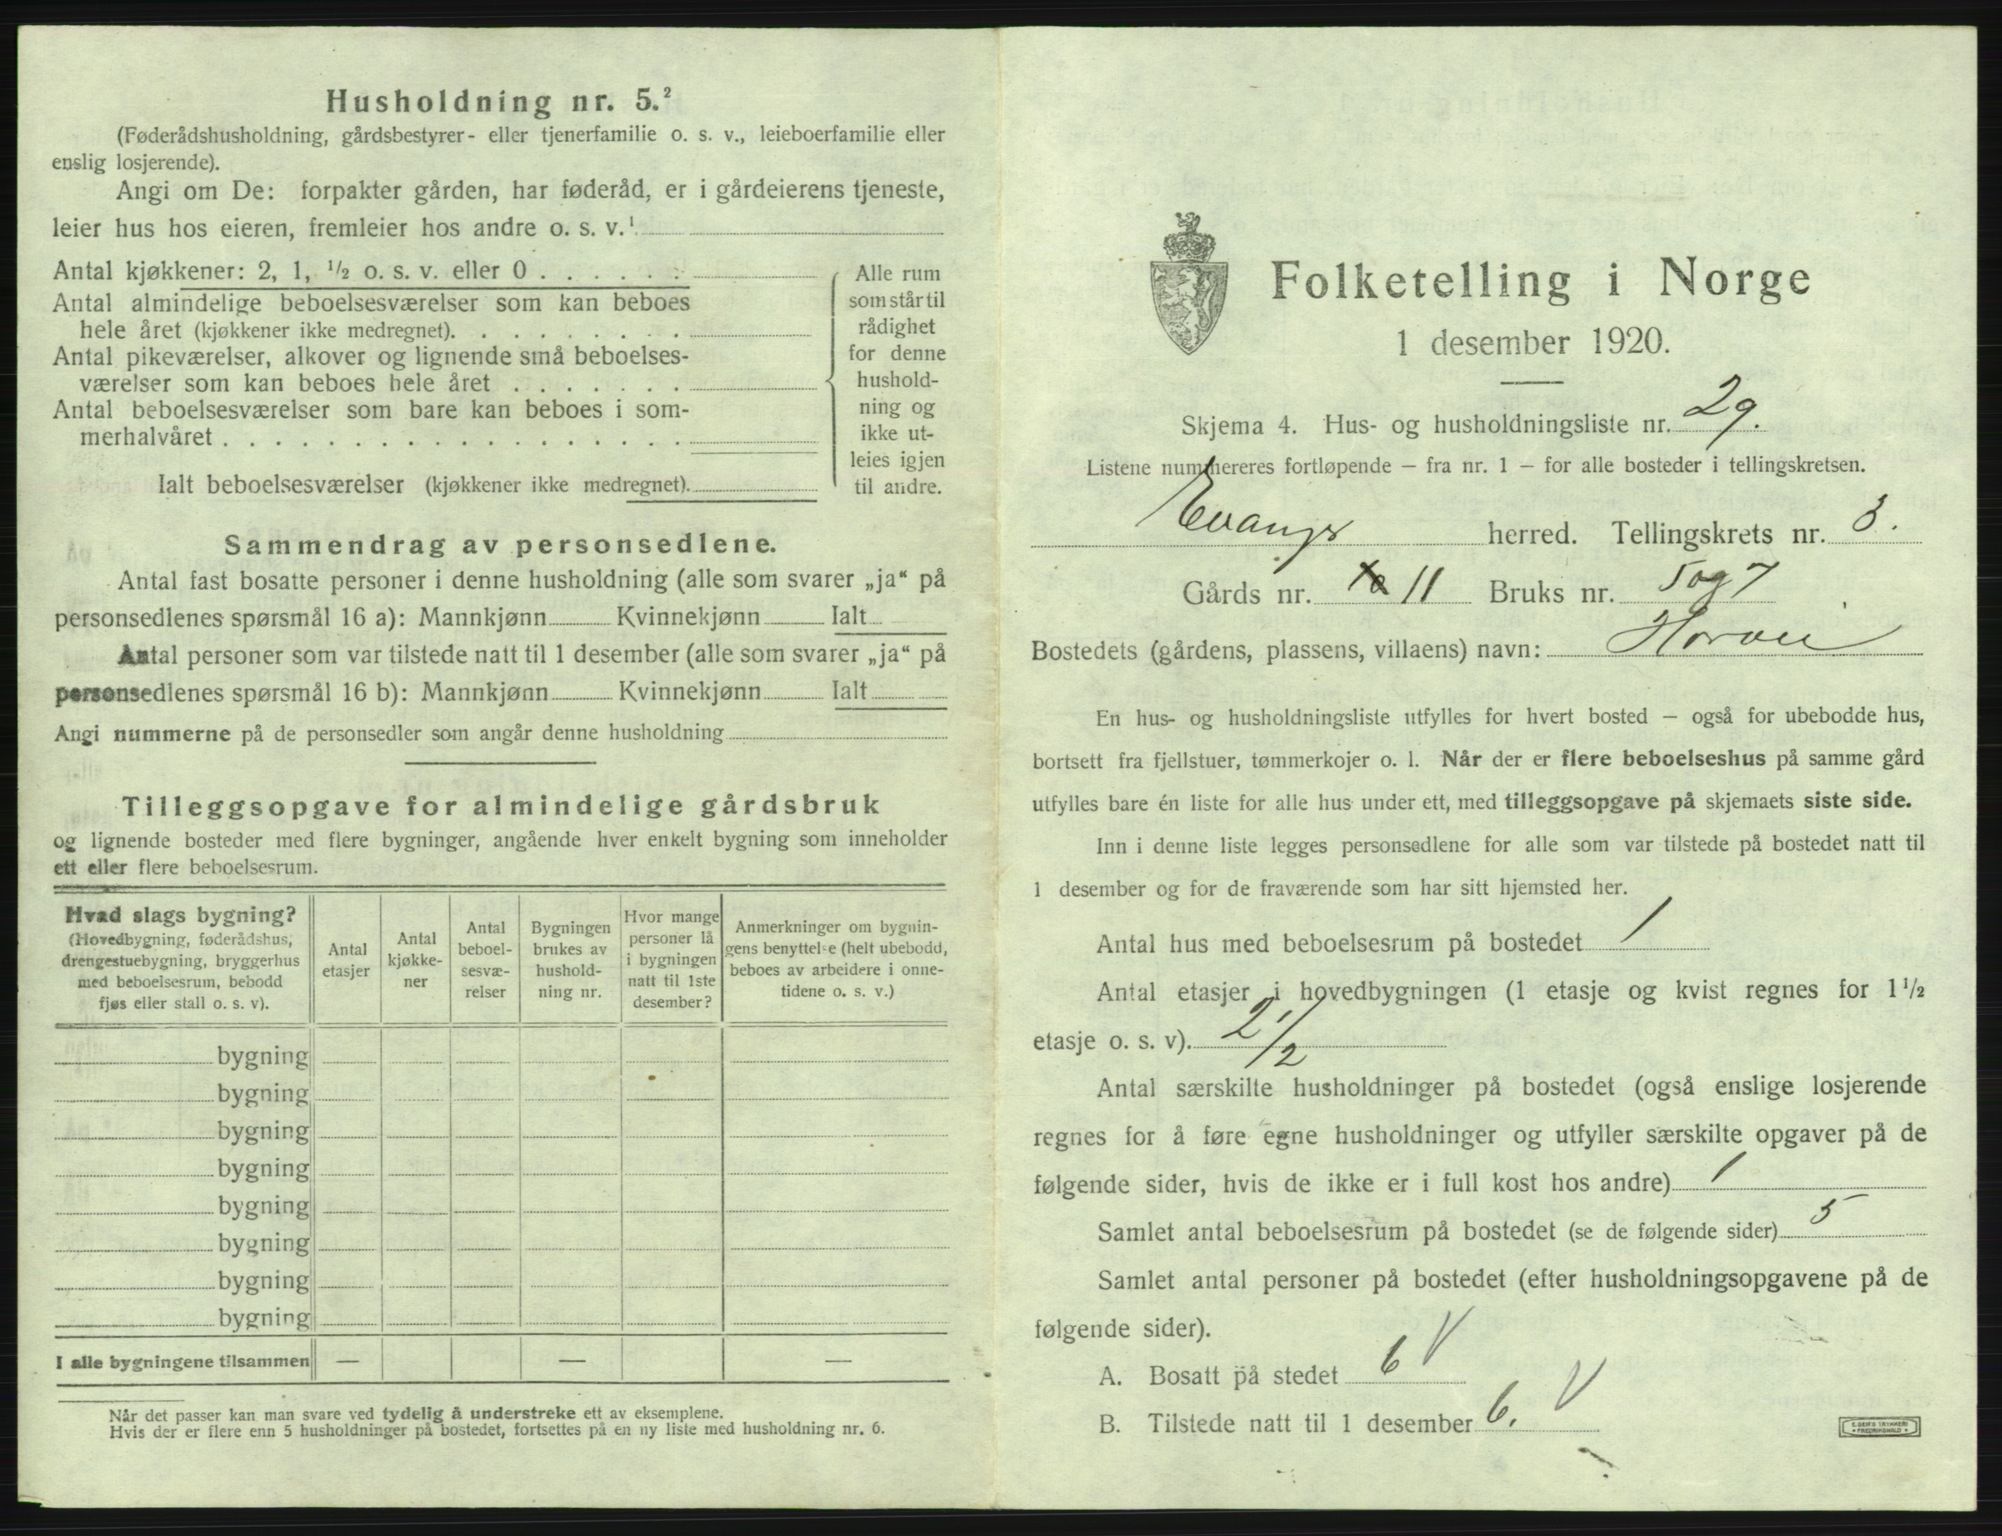 Husholdning nr. 5.²
(Føderådshusholdning, gårdsbestyrer- eller tjenerfamilie o. s. v., leieboerfamilie eller
enslig losjerende).
Angi om De: forpakter gården, har føderåd, er i gårdeierens tjeneste,
leier hus hos eieren, fremleier hos andre o. s. v.¹
Antal kjøkkener: 2, 1, ½ o. s. v. eller 0 . . . . . .
Antal almindelige beboelsesværelser som kan beboes
hele året (kjøkkener ikke medregnet). . . . . . . . .
Antal pikeværelser, alkover og lignende små beboelses-
værelser som kan beboes hele året . . . . . . .
Antal beboelsesværelser som bare kan beboes i som-
merhalvåret . . . . . . . . . . . . . . . . . .
Ialt beboelsesværelser (kjøkkener ikke medregnet).
Alle rum
som står til
rådighet
for denne
hushold-
ning og
ikke ut-
leies igjen
til andre.
Sammendrag av personsedlene.
Antal fast bosatte personer i denne husholdning (alle som svarer „ja“ på
personsedlenes spørsmål 16 a): Mannkjønn Kvinnekjønn Ialt
Antal personer som var tilstede natt til 1 desember (alle som svarer „ja“ på
personsedlenes spørsmål 16 b): Mannkjønn Kvinnekjønn Ialt
Angi nummerne på de personsedler som angår denne husholdning
Tilleggsopgave for almindelige gårdsbruk
og lignende bosteder med flere bygninger, angående hver enkelt bygning som inneholder
ett eller flere beboelsesrum.
Hvad slags bygning?
(Hovedbygning, føderådshus,
drengestuebygning, bryggerhus
med beboelsesrum, bebodd
fjøs eller stall o. s. v).
Antal
etasjer
Antal
kjøkke-
ner
Antal
beboel-
sesvæ-
relser
Bygningen
brukes av
hushold-
ning nr.
Hvor mange
personer lå
i bygningen
natt til 1ste
desember?
Anmerkninger om bygnin-
gens benyttelse (helt ubebodd,
beboes av arbeidere i onne-
tidene o. s. v.)
bygning
bygning
bygning
bygning
bygning
bygning
bygning
bygning
I alle bygningene tilsammen — — —
Når det passer kan man svare ved tydelig å understreke ett av eksemplene.
Hvis der er flere enn 5 husholdninger på bostedet, fortsettes på en ny liste med husholdning nr. 6.
Folketelling i Norge
1 desember 1920.
Skjema 4. Hus- og husholdningsliste nr. 29.
Listene nummereres fortløpende – fra nr. 1 – for alle bosteder i tellingskretsen.
Evanger herred. Tellingskrets nr. 3.
Gårds nr. 11 Bruks nr. 5 og 7
Bostedets (gårdens, plassens, villaens) navn: Horvei
En hus- og husholdningsliste utfylles for hvert bosted – også for ubebodde hus,
bortsett fra fjellstuer, tømmerkojer o. l. Når der er flere beboelseshus på samme gård
utfylles bare én liste for alle hus under ett, med tilleggsopgave på skjemaets siste side.
Inn i denne liste legges personsedlene for alle som var tilstede på bostedet natt til
1 desember og for de fraværende som har sitt hjemsted her.
Antal hus med beboelsesrum på bostedet 1
Antal etasjer i hovedbygningen (1 etasje og kvist regnes for 1½
etasje o. s. v). 2 1/2
Antal særskilte husholdninger på bostedet (også enslige losjerende
regnes for å føre egne husholdninger og utfyller særskilte opgaver på de
følgende sider, hvis de ikke er i full kost hos andre) 1
Samlet antal beboelsesrum på bostedet (se de følgende sider) 5
Samlet antal personer på bostedet (efter husholdningsopgavene på de
følgende sider).
A. Bosatt på stedet 6 V
B. Tilstede natt til 1 desember 6. V